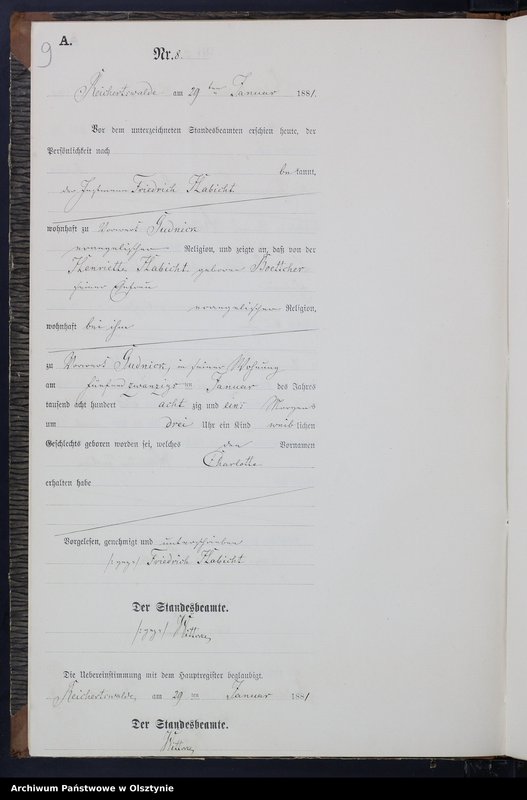 9
A.
Nr. 8.
Reichertswalde am 29 ten Januar 1881.
Vor dem unterzeichneten Standesbeamten erschien heute, der
Persönlichkeit nach
be kannt,
der Instmann Friedrich Habicht
wohnhaft zu Vorwerk Gudnick
evangelischer Religion, und zeigte an, daß von der
Henriette Habicht geboren Boettcher
seiner Ehefrau
evangelischer Religion,
wohnhaft bei ihm
zu Vorwerk Gudnick, in seiner Wohnung
am fünfund zwanzigsten Januar des Jahres
tausend acht hundert acht zig und eins Morgens
um drei Uhr ein Kind weib lichen
Geschlechts geboren worden sei, welches den Vornamen
Charlotte
erhalten habe
Vorgelesen, genehmigt und unterschrieben
/:gez:/ Friedrich Habicht
Der Standesbeamte.
/:gez:/
Die Uebereinstimmung mit dem Hauptregister beglaubigt.
Reichertswalde, am 29 ten Januar 1881
Der Standesbeamte.
Archiwum Państwowe w Olsztynie